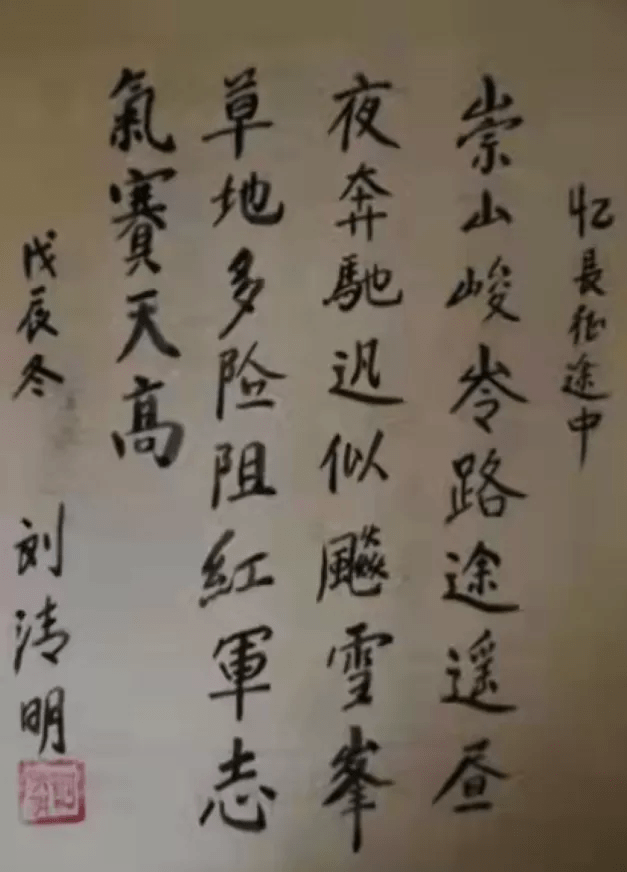 忆長征途中
崇山峻岺路途遥昼
夜奔馳迅似飈雪峯
草地多险阻紅軍志
氣賽天高
戊辰冬
刘清明